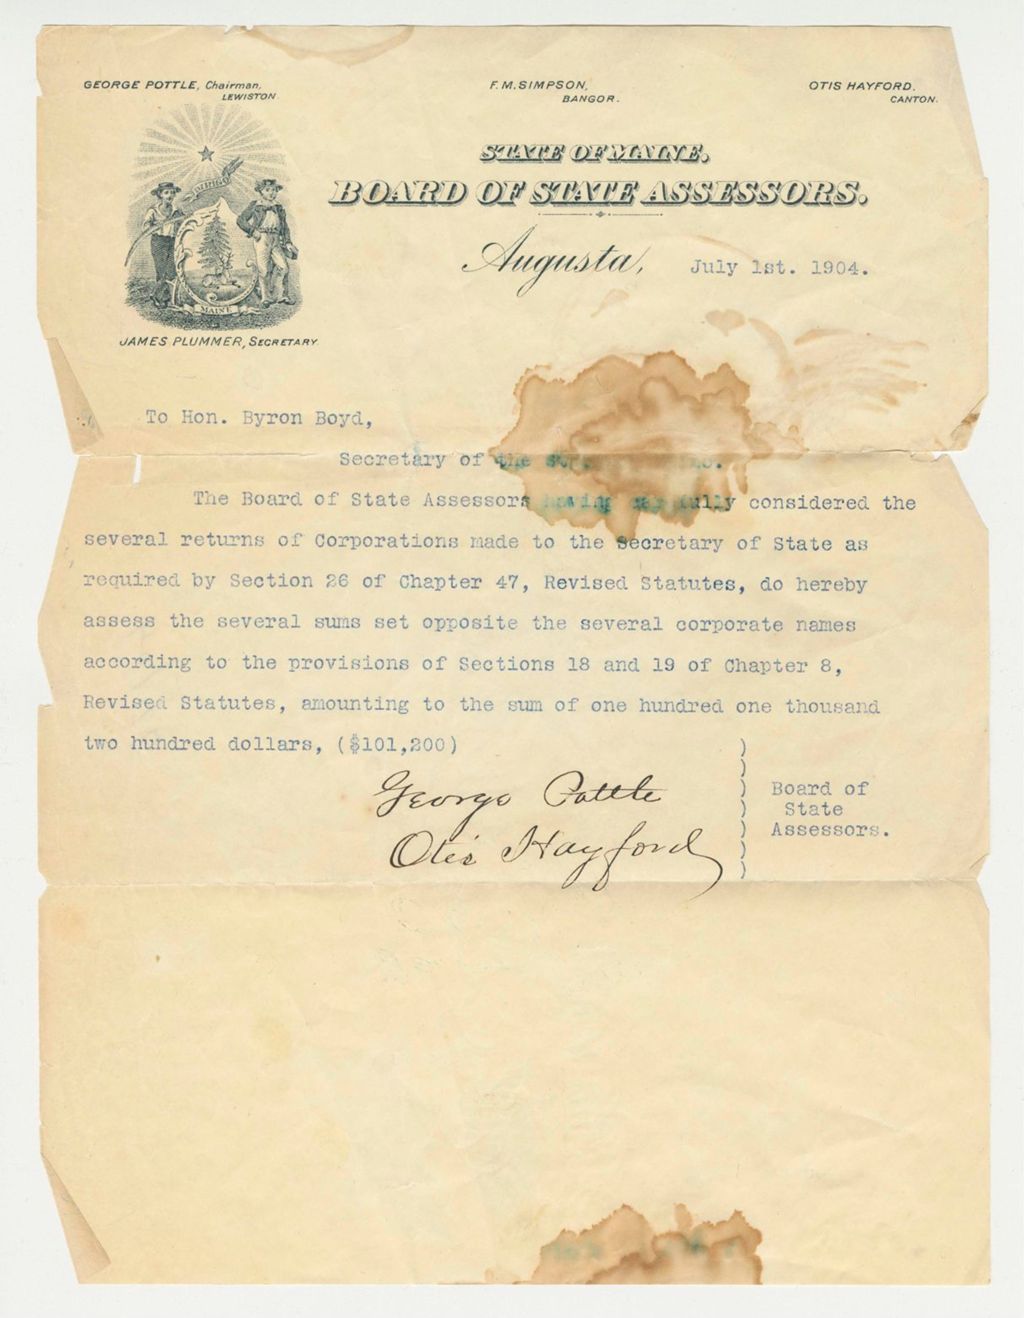 GEORGE POTTLE, Chairman,
LEWISTON.
F. M. SIMPSON,
BANGOR.
OTIS HAYFORD.
CANTON.
DIRIGO
MAINE
JAMES PLUMMER, SECRETARY.
STATE OF MAINE.
BOARD OF STATE ASSESSORS.
Augusta, July 1st. 1904.
To Hon. Byron Boyd,
Secretary of the
The Board of State Assessors having fully considered the
several returns of Corporations made to the Secretary of State as
required by Section 26 of Chapter 47, Revised Statutes, do hereby
assess the several sums set opposite the several corporate names
according to the provisions of Sections 18 and 19 of Chapter 8,
Revised Statutes, amounting to the sum of one hundred one thousand
two hundred dollars, ($101,200)
George Pottle
Otis Hayford
)
)
)
)
)
)
)
Board of
State
Assessors.